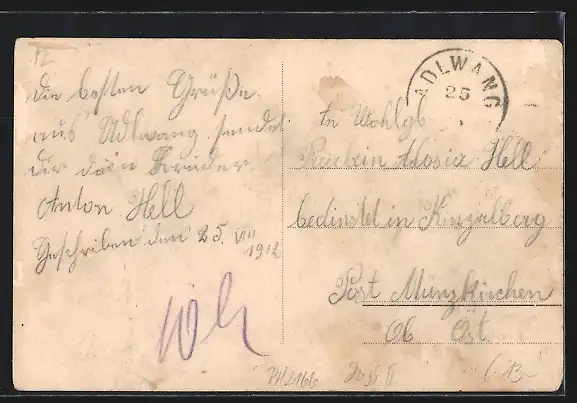 die besten Grüße
aus Adlwang sendet
dir dein Bruder
Anton Hell
Geschriben den 25. VIII
1912
ADLWANG
25
An Wohlgb
Aloisia Hell
bedinstet in Kinzelberg
Post Münzkirchen
Ob Öst.